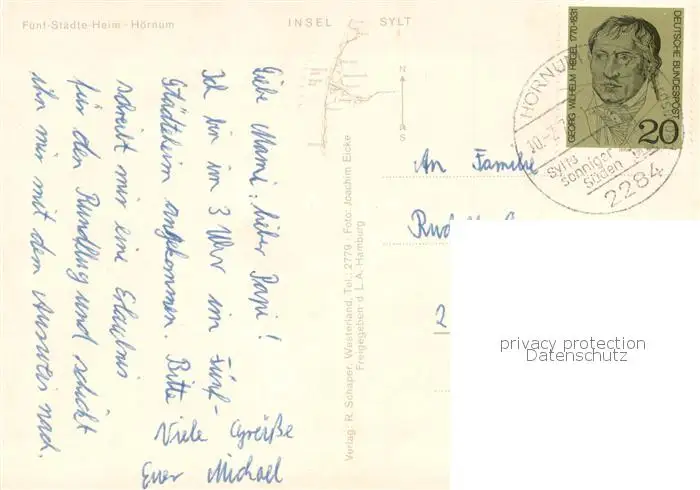 Fünf-Städte-Heim - Hörnum
INSEL SYLT
N
S
Liebe Mami, lieber Papi!
Ich bin im 3 Uhr im Fünf-
Städteheim angekommen. Bitte
schreibt mir eine Erlaubnis
für den Rundflug und schickt
ihn mir mit dem Ausweis nach.
Viele Grüße
Euer Michael
Verlag: R. Schaper, Westerland, Tel.: 2779 · Foto: Joachim Eicke
Freigegeben d. L.A. Hamburg
An Familie
2
GEORG WILHELM HEGEL 1770-1831
DEUTSCHE BUNDESPOST
20
HÖRNUM
Sylts
sonniger
Süden
2284
privacy protection
Datenschutz